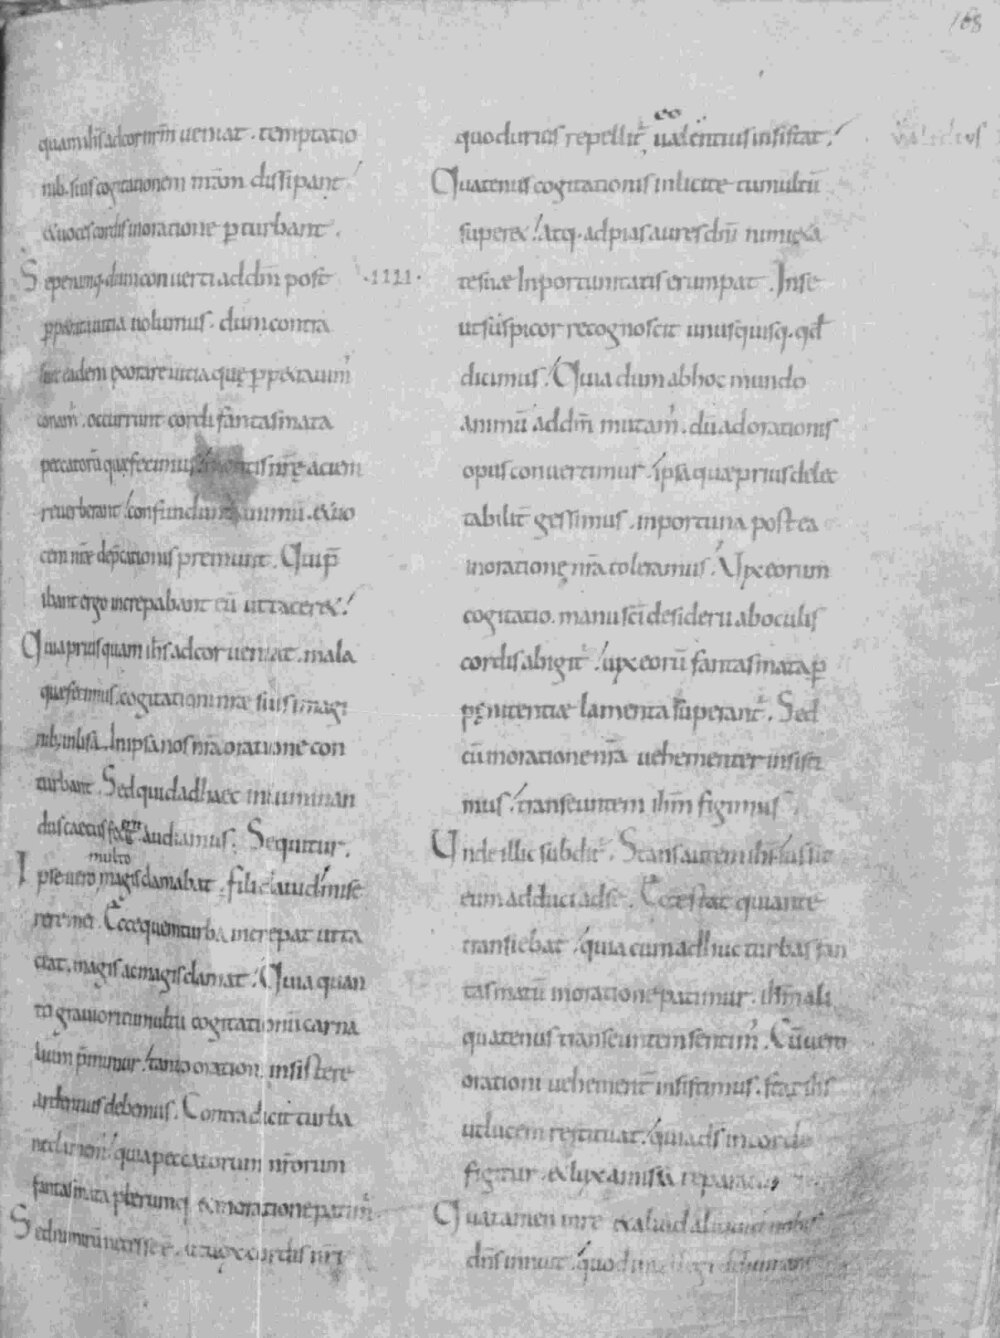 168
quam ihs ad cor nrm ueniat . temptatio
nib; suis cogitationem nram dissipant
& uoces cordis inoratione pturbant .
Sepe namq; dum conuerti ad dnm post
ppetrata uitia uolumus . dum contra
haec eadem exorare uitia quę ppetrauim'
conam' . occurrunt cordi fantasmata
peccatorū quę fecimus mentis nrę aciem
reuerberant confundunt animū . & uo
cem nrę dep̄cationis premunt . Qui p̄
ibant ergo increpabant eū ut taceret
Quia prius quam ihs ad cor ueniat . mala
quę fecimus cogitationi nrae suis imagi
nib; inlisa . In ipsa nos nra oratione con
turbant . Sed quid ad haec inluminan
dus caecus fecerit audiamus . Sequitur .
multo
Ipse uero magis clamabat . fili dauid mise
rere mei . Ecce quem turba increpat ut ta
ceat . magis ac magis clamat . Quia quan
to grauiori tumultu cogitationū carna
lium p̄mimur tanto orationi insistere
ardentius debemus . Contradicit turba
ne clamem' quia peccatorum nrorum
fantasmata plerumq; & in oratione patim' .
Sed nimirū necesse ē . ut uox cordis nri
·IIII·
eo
quo durius repellit' ualentius insistat
Quatenus cogitationis inlicite tumultū
superet Atq; ad pias aures dni nimieta
te suae Inportunitatis erumpat . In se
ut suspicor recognoscit unusquisq; qd
dicimus Quia dum ab hoc mundo
animū ad dm̄ mutam' . dū ad orationis
opus conuertimur . ipsa quae prius delec
tabilit gessimus . inportuna postea
in oratione nra toleramus . Vix eorum
cogitatio . manu sci desiderii ab oculis
cordis abigit' uix eorū fantasmata p
pęnitentiae lamenta superant' . Sed
cū in oratione nra uehementer insisti
mus transeuntem ihm figimus
Unde illic subdit' . Stans autem ihs iussit
eum adduci ad se . Ecce stat qui ante
transiebat quia cum adhuc turbas fan
tasmatū in oratione patimur . ihm ali
quatenus transeuntem sentim' . Cū uero
orationi uehement insistimus . stat ihs
ut lucem restituat quia ds in corde
figitur . & lux amissa reparatur
Qua tamen in re & aliud aliquid nobis
dns innuit quod